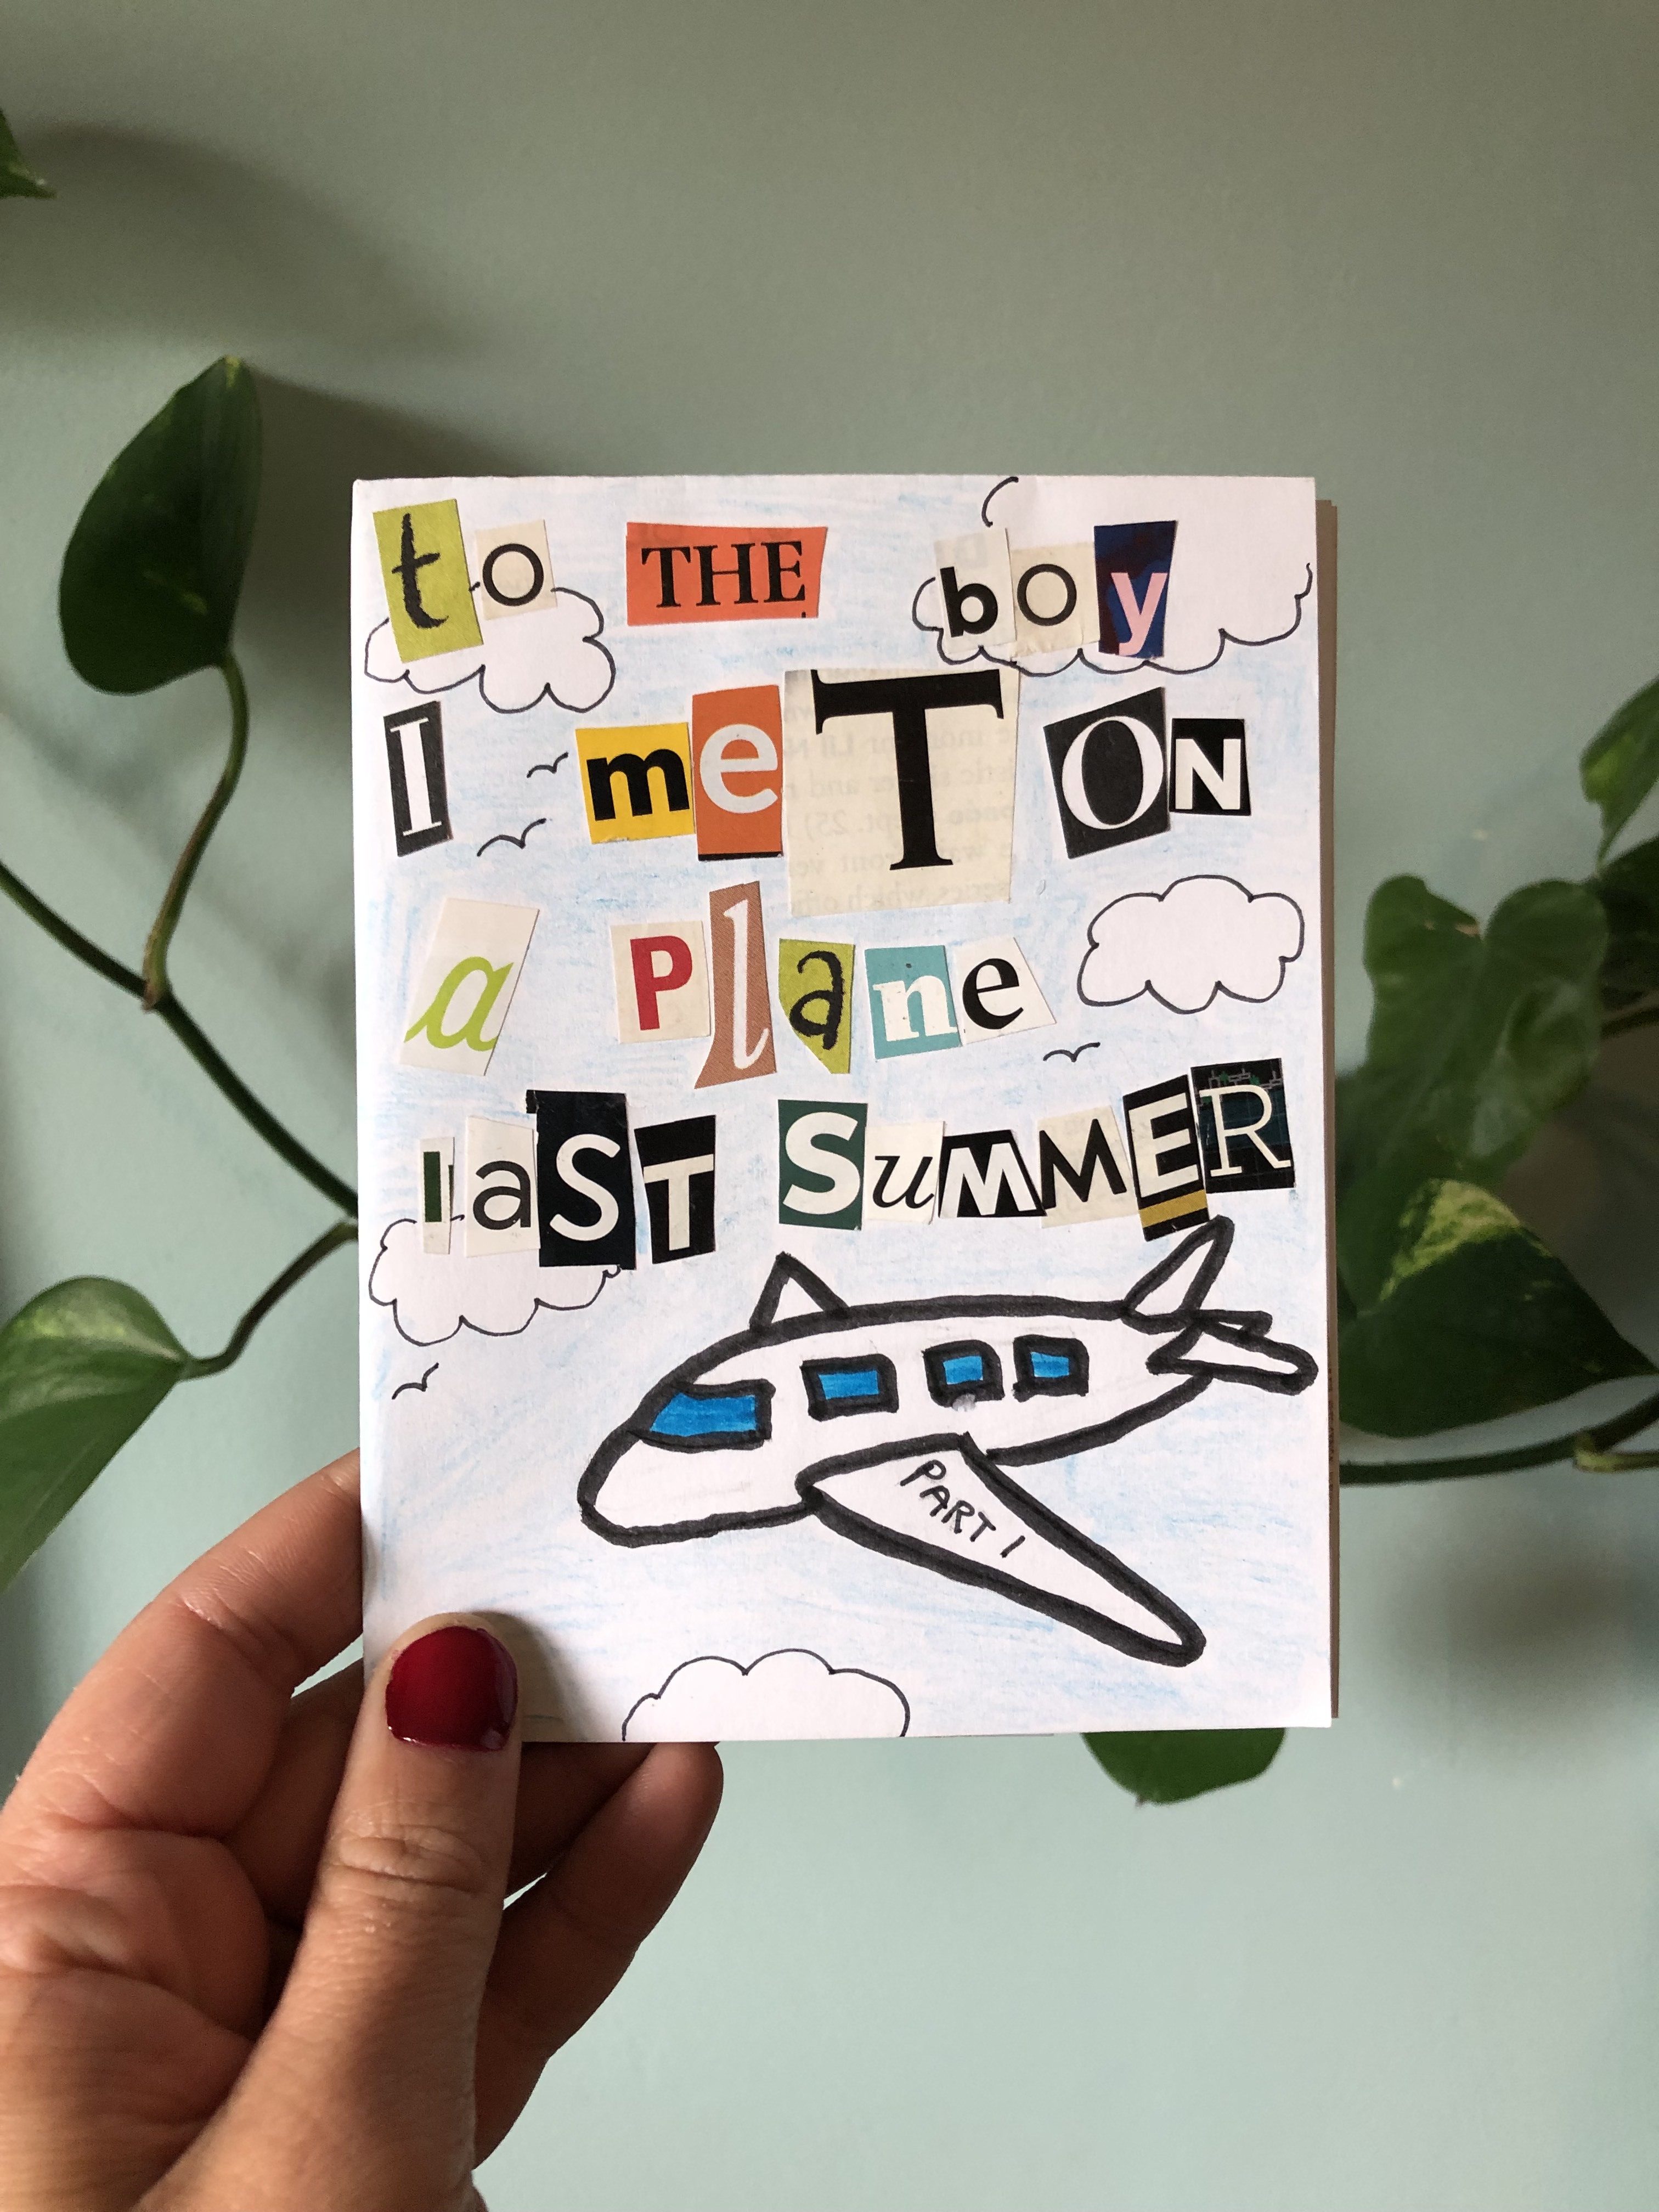 to THE boy
I meT ON
a Plane
laST SuMMER
PART 1